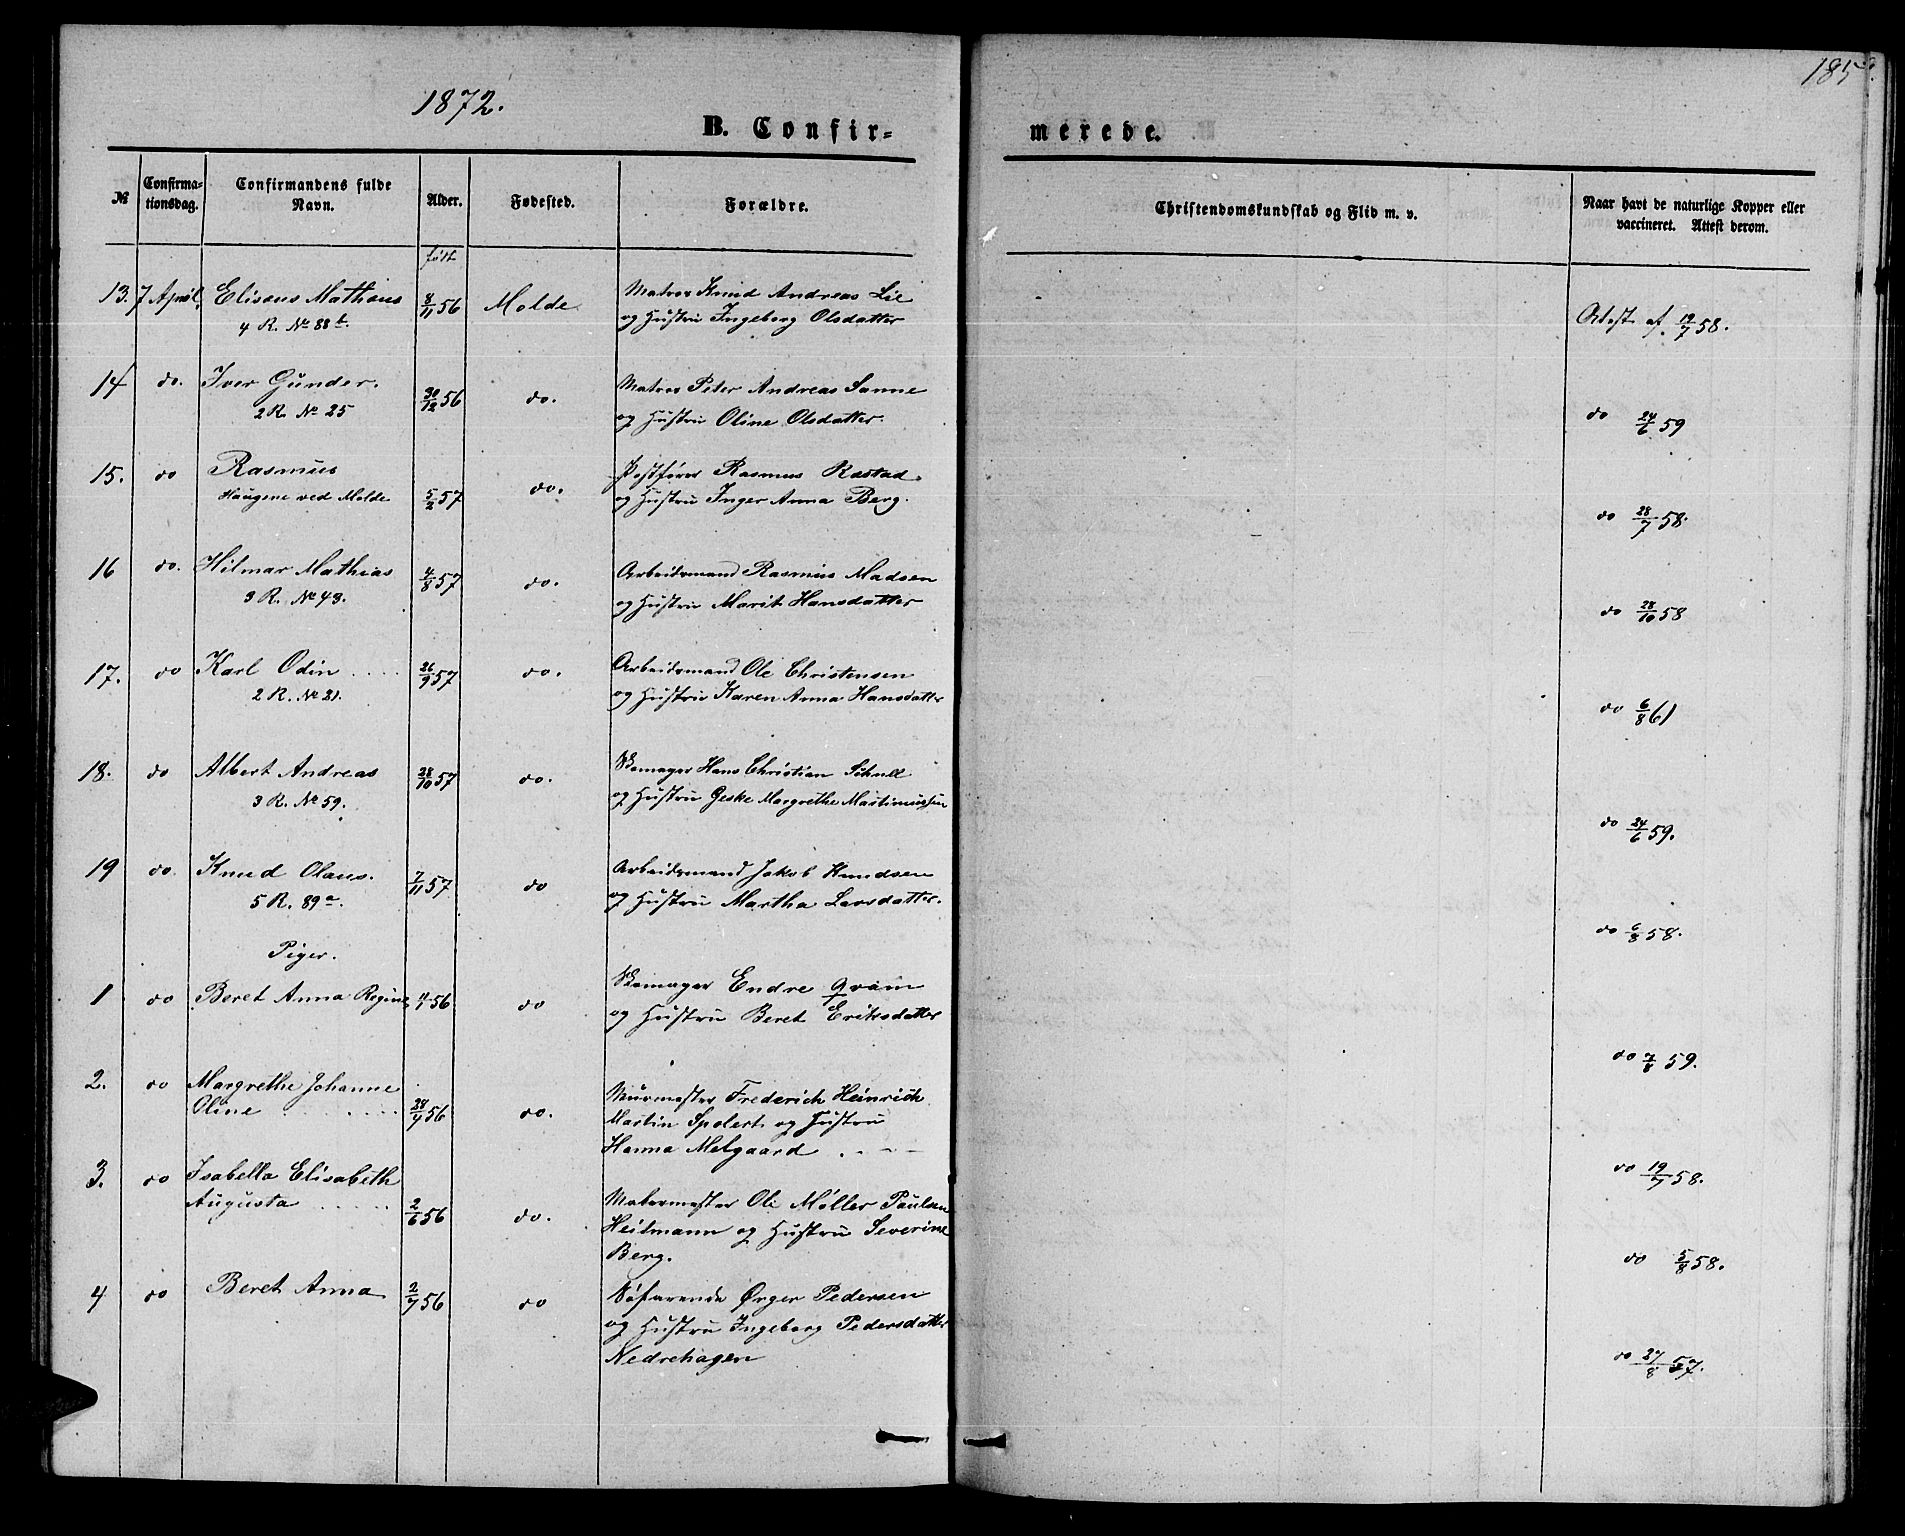 1872.
185
B. Confir=
merede.
№
Confirma-
tionsdag.
Confirmandens fulde
Navn.
Alder.
Fødested.
Forældre.
Christendomskundskab og Flid m. v.
Naar havt de naturlige Kopper eller
vaccineret. Attest derom.
født
13. 7 April. Eliseus Mathæus 8/11 56 Molde Matros Knud Andreas Lie
4 R. No 88 b. og Hustru Ingeborg Olsdatter
Attest af 19/7 58.
14 do. Iver Gunder. 30/12 56 do. Matros Peter Andreas Sanne
2 R. No 25 og Hustru Oline Olsdatter.
do 24/6 59
15. do Rasmus 5/2 57 do. Postfører Rasmus Rastad
Haugene ved Molde og Hustru Inger Anna Berg.
do 28/7 58.
16 do. Hilmar Mathias 4/8 57 do. Arbeidsmand Rasmus Madsen
3 R. No 43. og Hustru Marit Hansdatter
do 28/10 58
17. do Karl Odin 26/9 57 do. Arbeidsmand Ole Christensen
2 R. No 21. og Hustru Karen Anna Hansdatter
do 6/8 61
18. do Albert Andreas 28/10 57 do. Skomager Hans Christian Schnell
3 R. No 59. og Hustru Geske Margrethe Martinussen
do 24/6 59.
19 do. Knud Olaus. 7/11 57 do Arbeidsmand Jakob Knudsen
5 R. 89 a. og Hustru Martha Larsdatter.
do 6/8 58.
Piger.
1 do Beret Anna Regine 4/1 56 do Skomager Endre Gram
og Hustru Beret Eriksdatter
do 7/8 59.
2. do Margrethe Johanne
Oline 28/4 56 do. Murmester Frederich Heinrich
Martin Spolert og Hustru
Hanna Melgaard
do 19/7 58.
3. do Isabella Elisabeth
Augusta 2/6 56 do. Malermester Ole Møller Paulsen
Heilmann og Hustru Severine
Berg.
do 5/8 58.
4 do Beret Anna 2/7 56 do Søfarende Ørger Pedersen
og Hustru Ingeborg Pedersdatter
Nedrehagen
do 27/8 57.